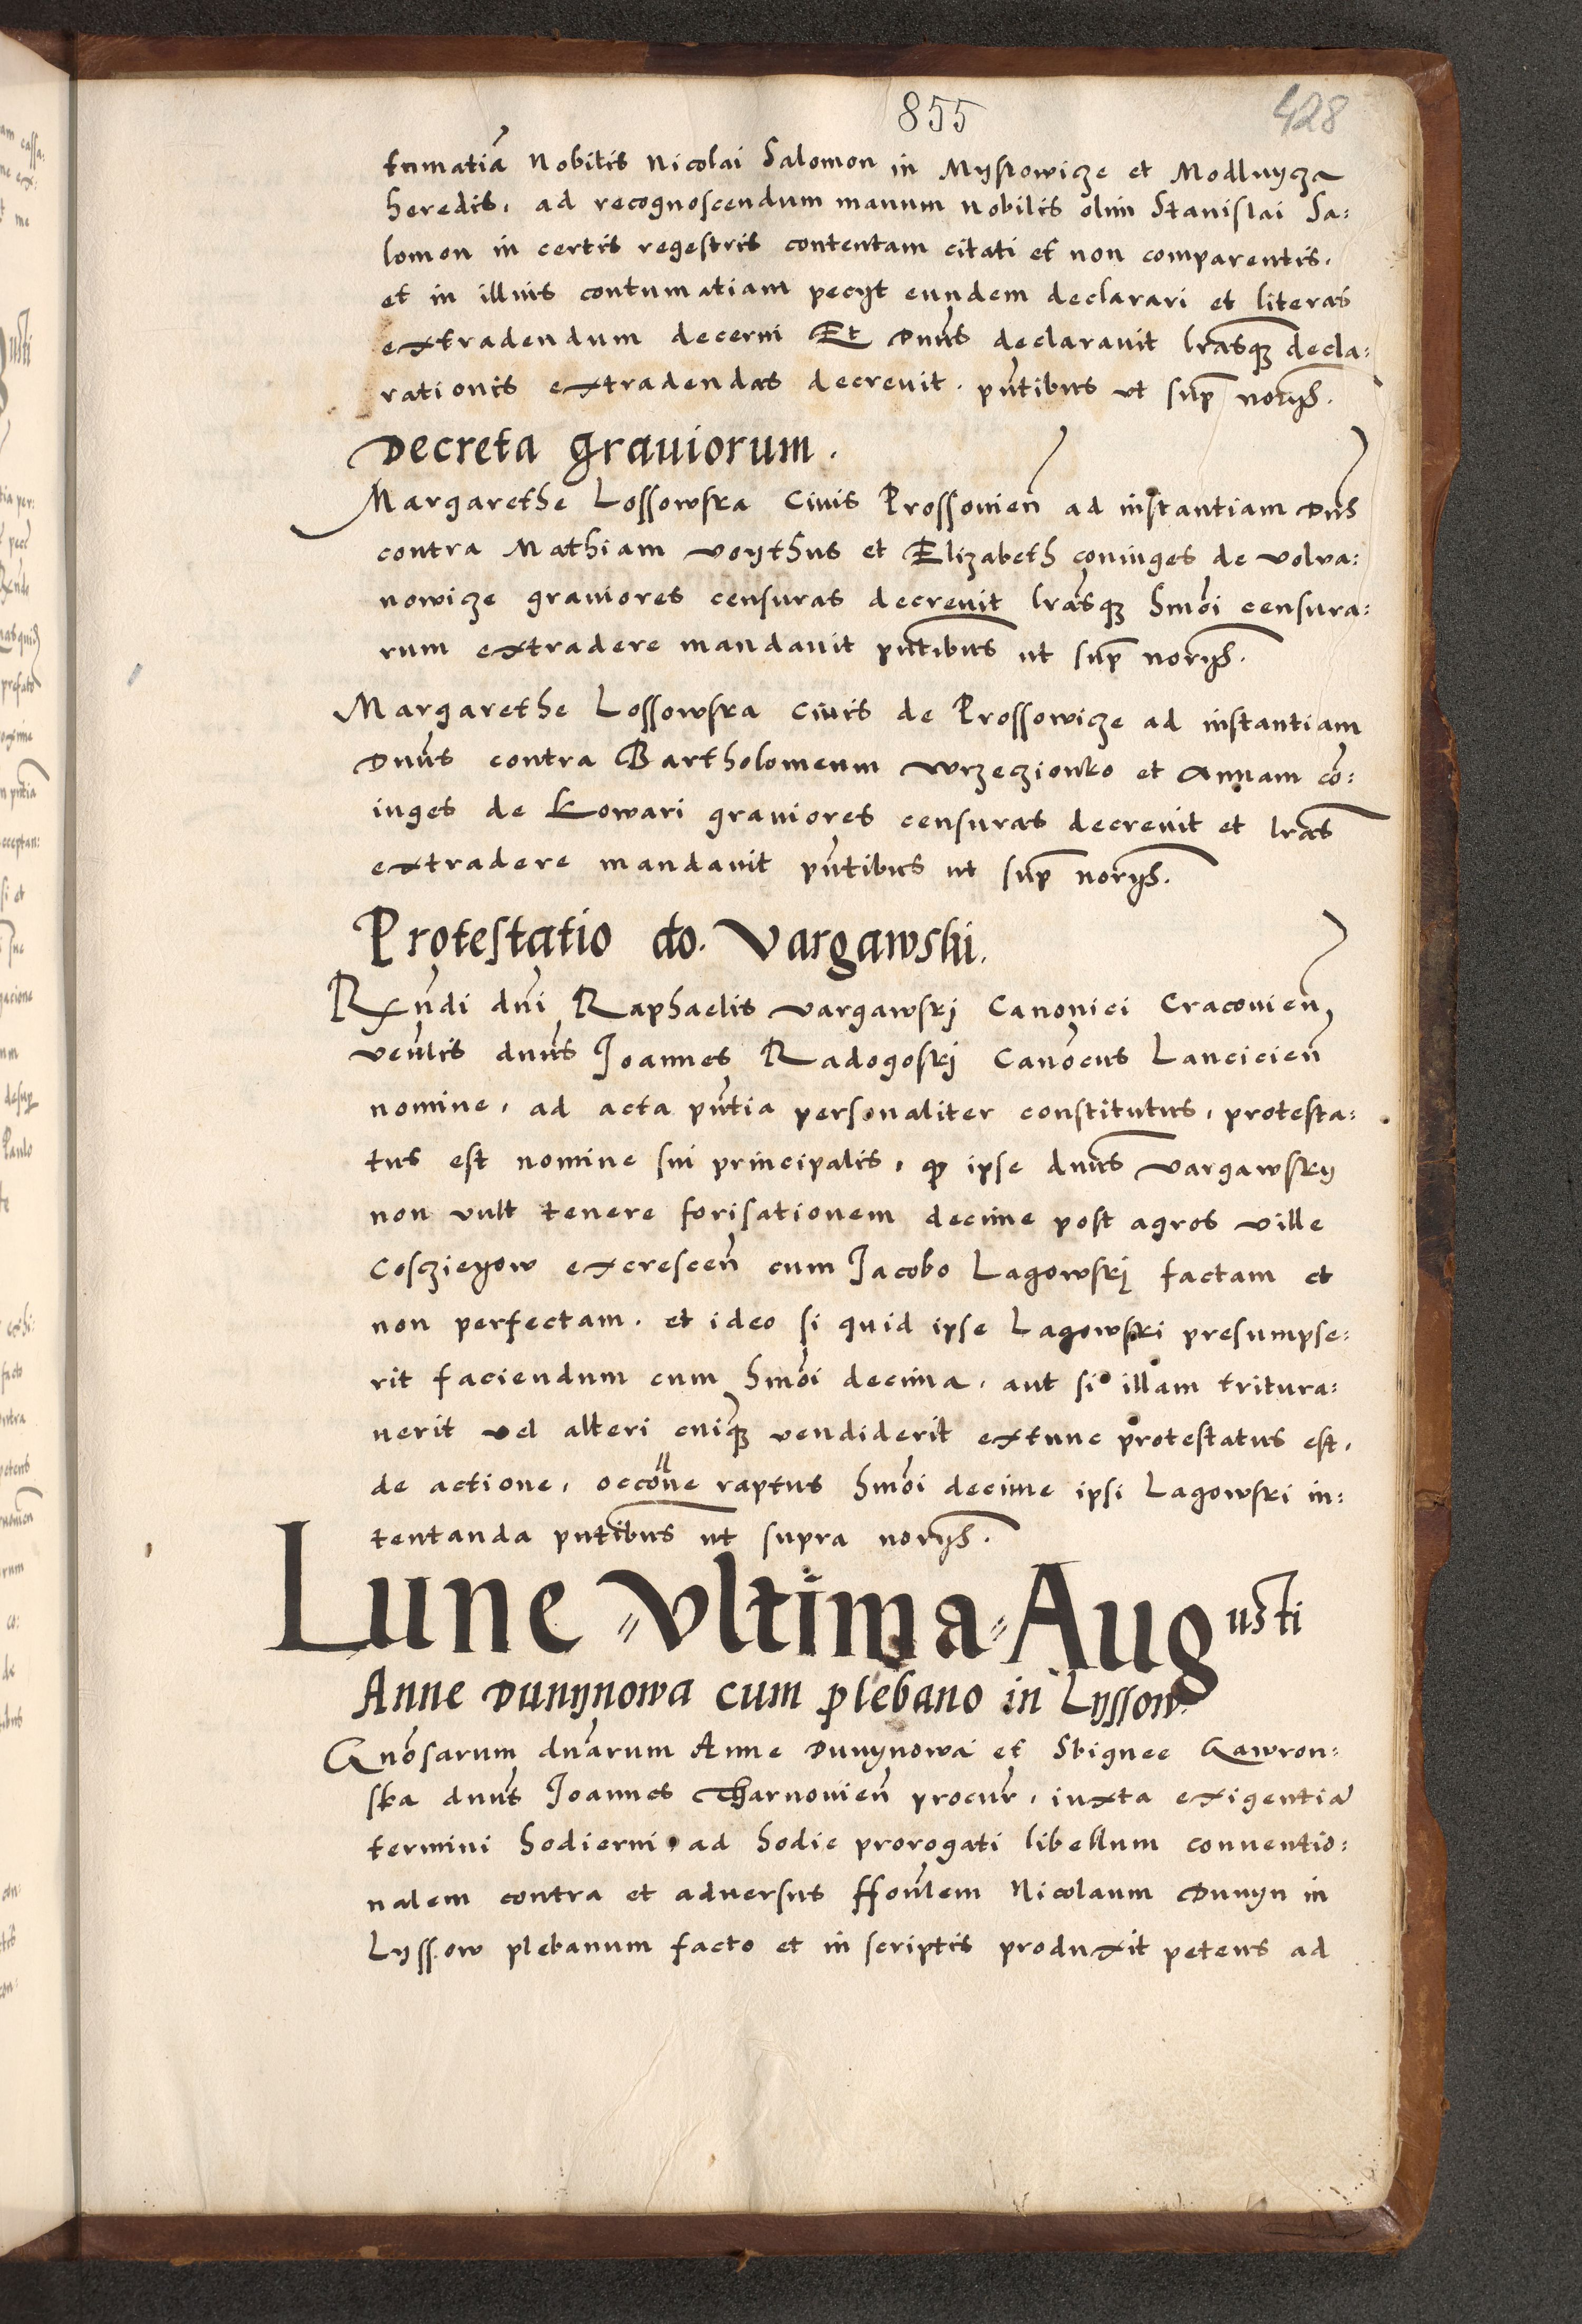 855
428
tumatiã Nobilis Nicolai Salomon in Myslowicze et Modlnycza
heredis, ad recognoscendum manum nobilis olim Stanislai Sa:
lomon in certis regestris contentam citati et non comparentis.
et in illius contumatiam pecijt eundem declarari et literas
extradendum decerni Et Dnus declarauit lrasq; decla:
rationis extradendas decreuit. pntibus vt sup norijs.
Decreta grauiorum.
Margarethe Lossowska Ciuis Prossouien ad instantiam Dns
contra Mathiam Voythus et Elizabeth coniuges de Volua:
nowicze grauiores censuras decreuit lrasq; hmoi censura:
rum extradere mandauit pntibus ut sup norijs.
Margarethe Lossowska ciuis de Prossowicze ad instantiam
Dnus contra Bartholomeum Wrzeczionko et Annam co:
iuges de Kowari grauiores censuras decreuit et lras
extradere mandauit pntibus ut sup norijs.
Protestatio do. Vargawski.
Rxndi dni Raphaelis Vargawskj Canonici Cracouien
venlis dnus Joannes Radogoskj Canocus Lancicien
nomine, ad acta pntia personaliter constitutus, protesta:
tus est nomine sui principalis, qp ipse dnus Vargawsky
non vult tenere forisationem decime post agros ville
Cosczieyow excrescen cum Jacobo Lagowskj factam et
non perfectam. et ideo si quid ipse Lagowski presumpse:
rit faciendum cum hmoi decima, aut si illam tritura:
uerit vel alteri cuiq; vendiderit extunc protestatus est,
de actione, occone raptus hmoi decime ipsi Lagowski in:
tentanda pntibus ut supra norijs.
Lune Vltima Augusti
Anne Dunynowa cum plebano in Lyssow.
Gnosarum dnarum Anne Dunynowa et Sbignee Gawron:
ska dnus Joannes Tharnouien procur, iuxta exigentiã
termini hodierni ad hodie prorogati libellum conuentio:
nalem contra et aduersus ffonlem Nicolaum Dunyn in
Lyssow plebanum facto et in scriptis produxit petens ad